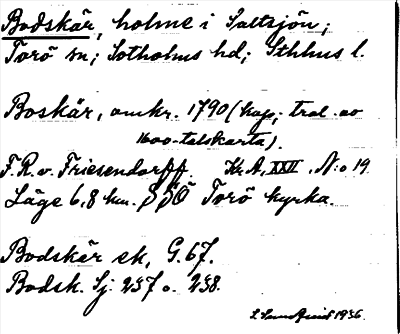 Bodskär, holme i Saltsjön;
Torö sn; Sotholms hd; Sthlms l.
Boskär, omkr. 1790 (kop; trol. av
1600-talskarta).
F.R.v. Friesendorff. Kr.A, XXII, N:o 19
Läge 6,8 km. SSÖ Torö kyrka.
Bodskär ek, G.67.
Bodsk. Sj. 237 o. 238.
1936.